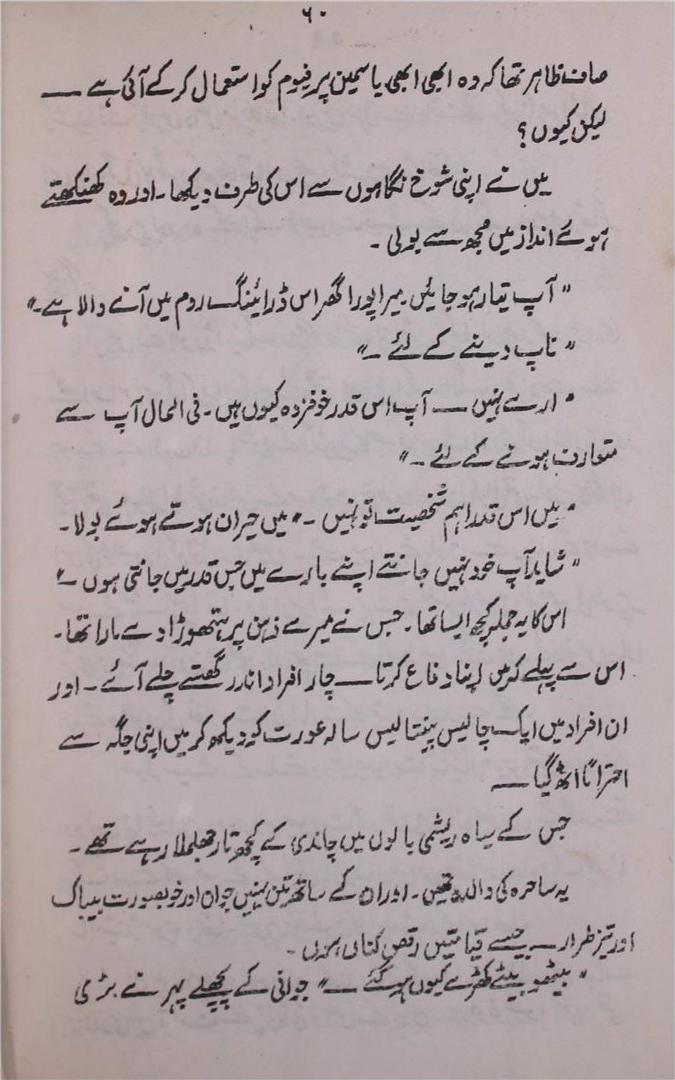 ۶۰
صاف ظاہر تھا کہ وہ ابھی ابھی یاسمین پرفیوم کو استعمال کر کے آئی ہے ــــ
لیکن کیوں؟
میں نے اپنی شوخ نگاہوں سے اس کی طرف دیکھا۔ اور وہ کھنکھتے
ہوئے انداز میں مجھ سے بولی۔
"آپ تیار ہو جائیں۔ میرا پورا گھر اس ڈرائینگ روم میں آنے والا ہے۔"
"ناپ دینے کے لئے ۔"
"ارے نہیں ــــ آپ اس قدر خوفزدہ کیوں ہیں۔ فی الحال آپ سے
متعارف ہونے کے لئے ۔"
"میں اس قدر اہم شخصیت تو نہیں ۔" میں حیران ہوتے ہوئے بولا۔
"شاید آپ خود نہیں جانتے اپنے بارے میں جس قدر میں جانتی ہوں ۔"
اس کا یہ جملہ کچھ ایسا تھا۔ جس نے میرے ذہن پر ہتھوڑا دے مارا تھا۔
اس سے پہلے کہ میں اپنا دفاع کرتا ــــ چار افراد اندر گھستے چلے آئے۔ اور
ان افراد میں ایک چالیس پینتالیس سالہ عورت کو دیکھ کر میں اپنی جگہ سے
احتراماً اٹھ گیا ــــ
جس کے سیاہ ریشمی بالوں میں چاندی کے کچھ تار جھلملا رہے تھے۔
یہ ساحرہ کی والدہ تھیں۔ اور ان کے ساتھ تین بہنیں جوان اور خوبصورت بیباک
اور تیز طرار ــ جیسے قیامتیں رقص کناں ہوں۔
"بیٹھو بیٹے کھڑے کیوں ہو گئے ــــ" جوانی کے پچھلے پہر نے بڑی